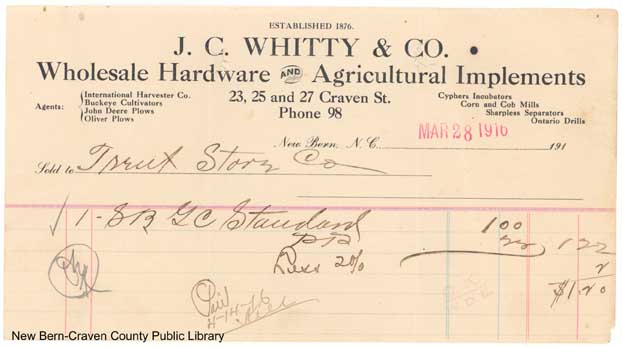 ESTABLISHED 1876.
J. C. WHITTY & CO.
Wholesale Hardware AND Agricultural Implements
Agents: International Harvester Co.
Buckeye Cultivators
John Deere Plows
Oliver Plows
23, 25 and 27 Craven St.
Phone 98
Cyphers Incubators
Corn and Cob Mills
Sharpless Separators
Ontario Drills
New Bern, N. C. MAR 28 1916 191
Sold to Truit Story Co
1 - SB GC Standard 1 00
PP 22 1 22
Less 2% 2
$1.20
Paid
4-14-16
New Bern-Craven County Public Library